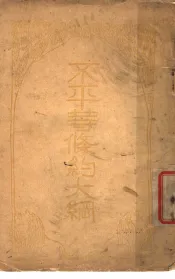 不平等條約大綱